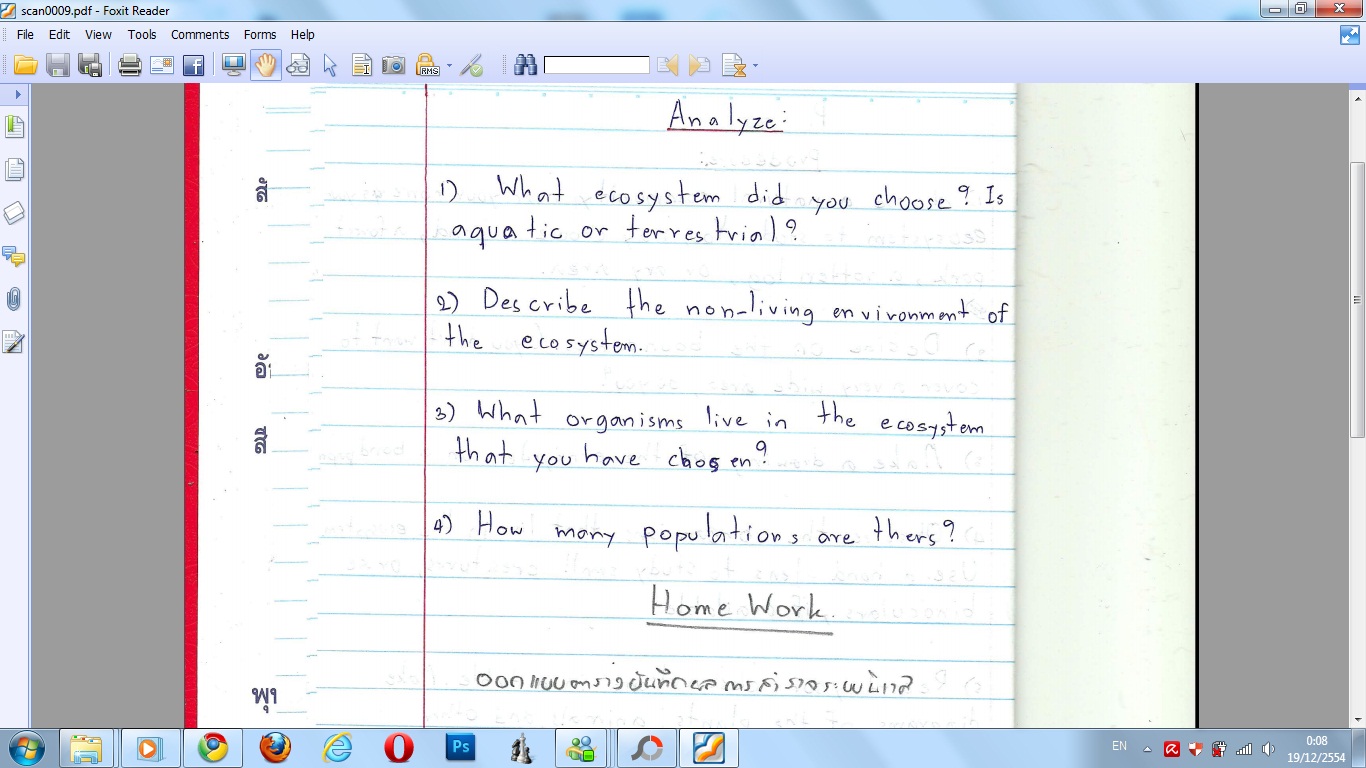 scan0009.pdf - Foxit Reader
File Edit View Tools Comments Forms Help
RMS
Analyze:
สั
1) What ecosystem did you choose? Is
aquatic or terrestrial?
2) Describe the non-living environment of
the ecosystem.
อั
3) What organisms live in the ecosystem
สี
that you have chosen?
4) How many populations are thers?
Home Work.
ออกแบบตารางบันทึกผลการสำรวจระบบนิเวศ
พุ
Ps
EN
0:08
19/12/2554